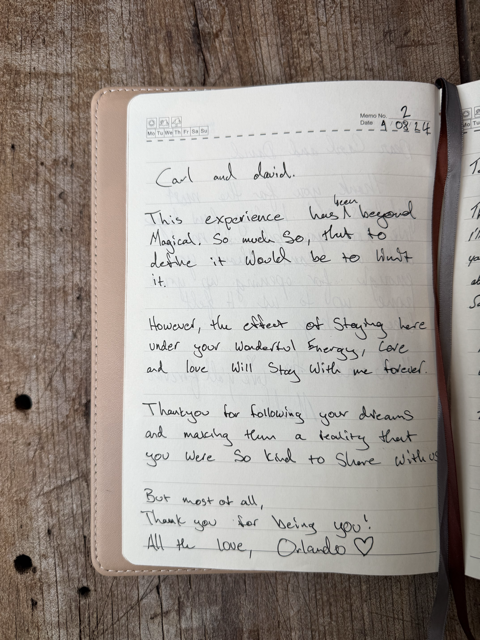 Memo No. 2
Mo Tu We Th Fr Sa Su
Date 1 08 24
Carl and david.
This experience has been beyond
Magical. So much So, that to
define it Would be to limit
it.
However, the effect of Staying here
under your Wonderful Energy, Care
and love Will Stay With me forever.
Thankyou for following your dreams
and making them a reality that
you Were So kind to Share With us
But most of all,
Thank you for being you!
All the Love, Orlando ♡